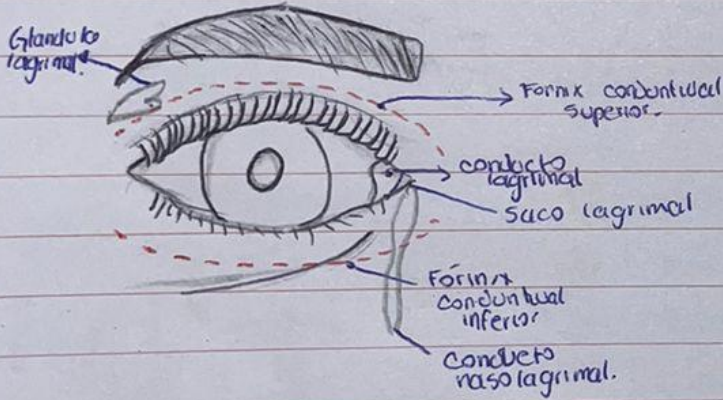 Glandula
lagrimal.
Fornix conduntiual
superior.
conducto
lagrimal
Saco lagrimal
Fórinix
conduntiual
inferior
Conducto
nasolagrimal.